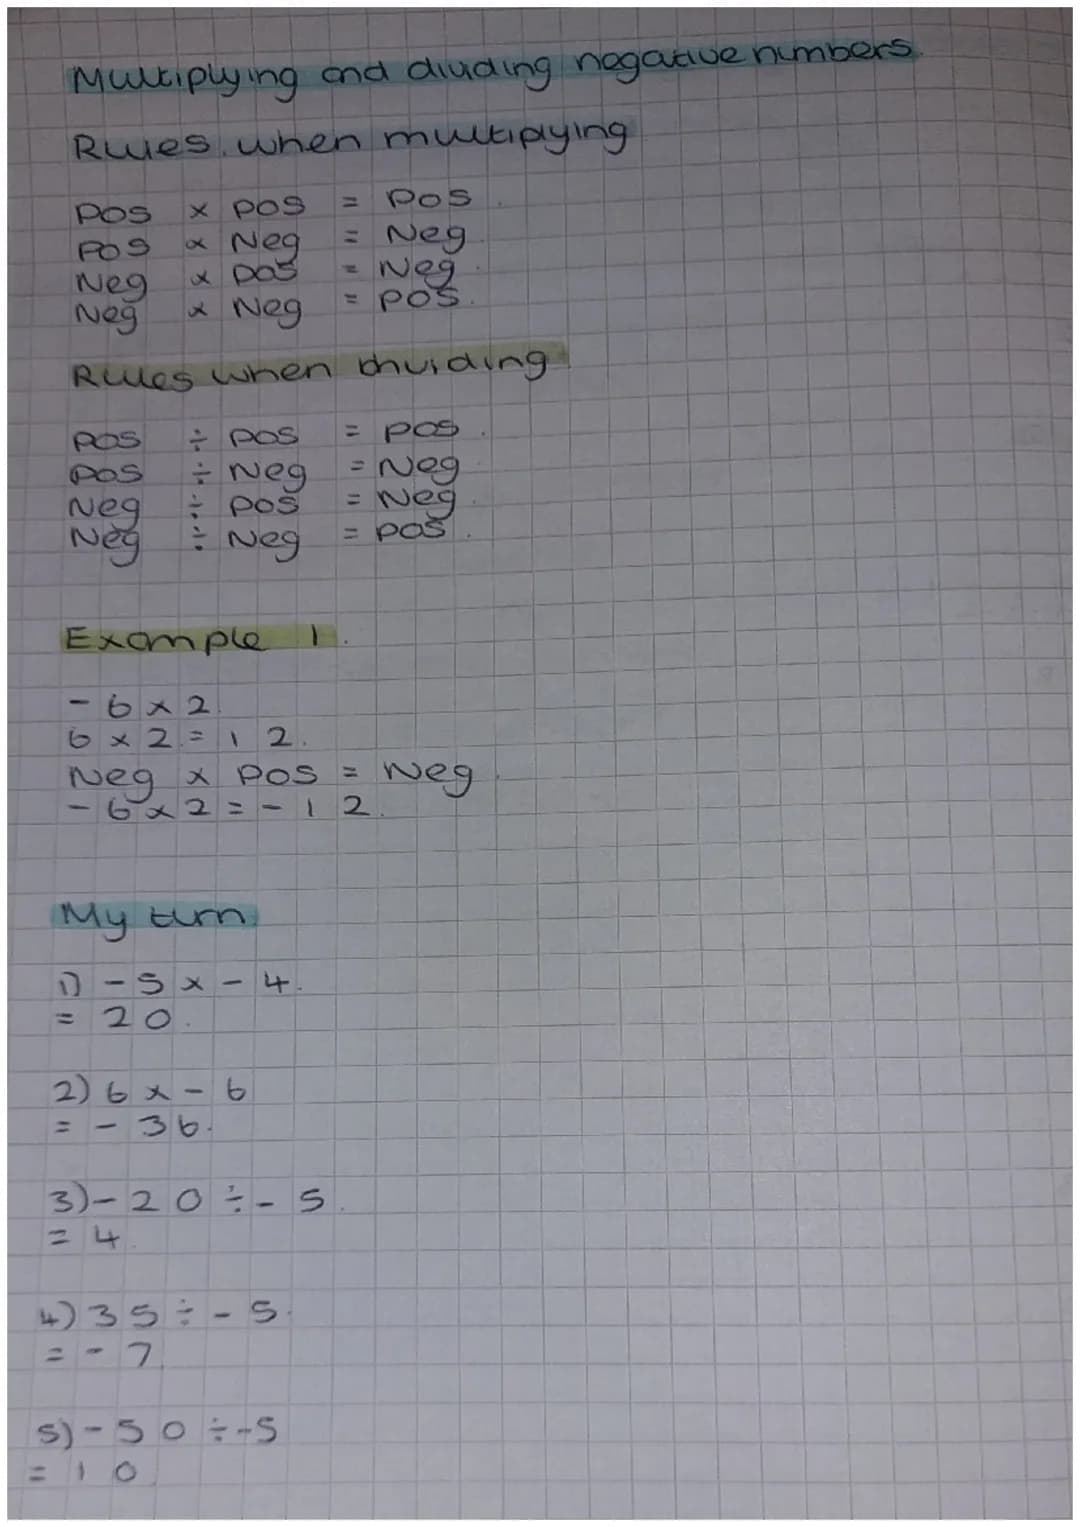 Multiplying and dividing negative numbers.
Rules when multiplying
Pos × pos = pos.
Pos × Neg = Neg.
Neg × pos = Neg.
Neg × Neg = pos.
Rules when dividing
pos ÷ pos = pos.
pos ÷ Neg = Neg.
Neg ÷ pos = Neg.
Neg ÷ Neg = pos.
Example 1.
-6 × 2.
6 × 2 = 12.
Neg × pos = Neg.
-6 × 2 = -12.
My turn.
1) -5 × -4.
= 20.
2) 6 × -6
= -36.
3) -20 ÷ -5.
= 4.
4) 35 ÷ -5.
= -7.
5) -50 ÷ -5
= 10.